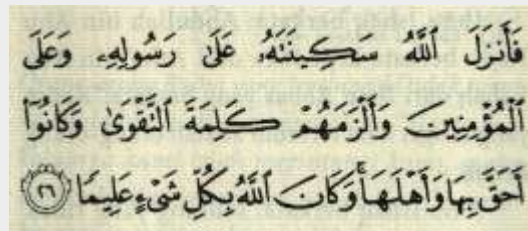 فَأَنزَلَ ٱللَّهُ سَكِينَتَهُۥ عَلَىٰ رَسُولِهِۦ وَعَلَى
ٱلْمُؤْمِنِينَ وَأَلْزَمَهُمْ كَلِمَةَ ٱلتَّقْوَىٰ وَكَانُوٓا۟
أَحَقَّ بِهَا وَأَهْلَهَا ۚ وَكَانَ ٱللَّهُ بِكُلِّ شَىْءٍ عَلِيمًا ٢٦